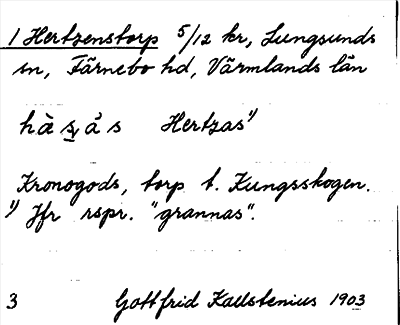 1 Hertzenstorp 5/12 kr, Lungsunds
sn, Färnebo hd, Värmlands län
hà s̬ ȧ s Hertzas 1)
Kronogods, torp t. Kungsskogen.
1) Jfr rspr. "grannas".
3 Gottfrid Kallstenius 1903